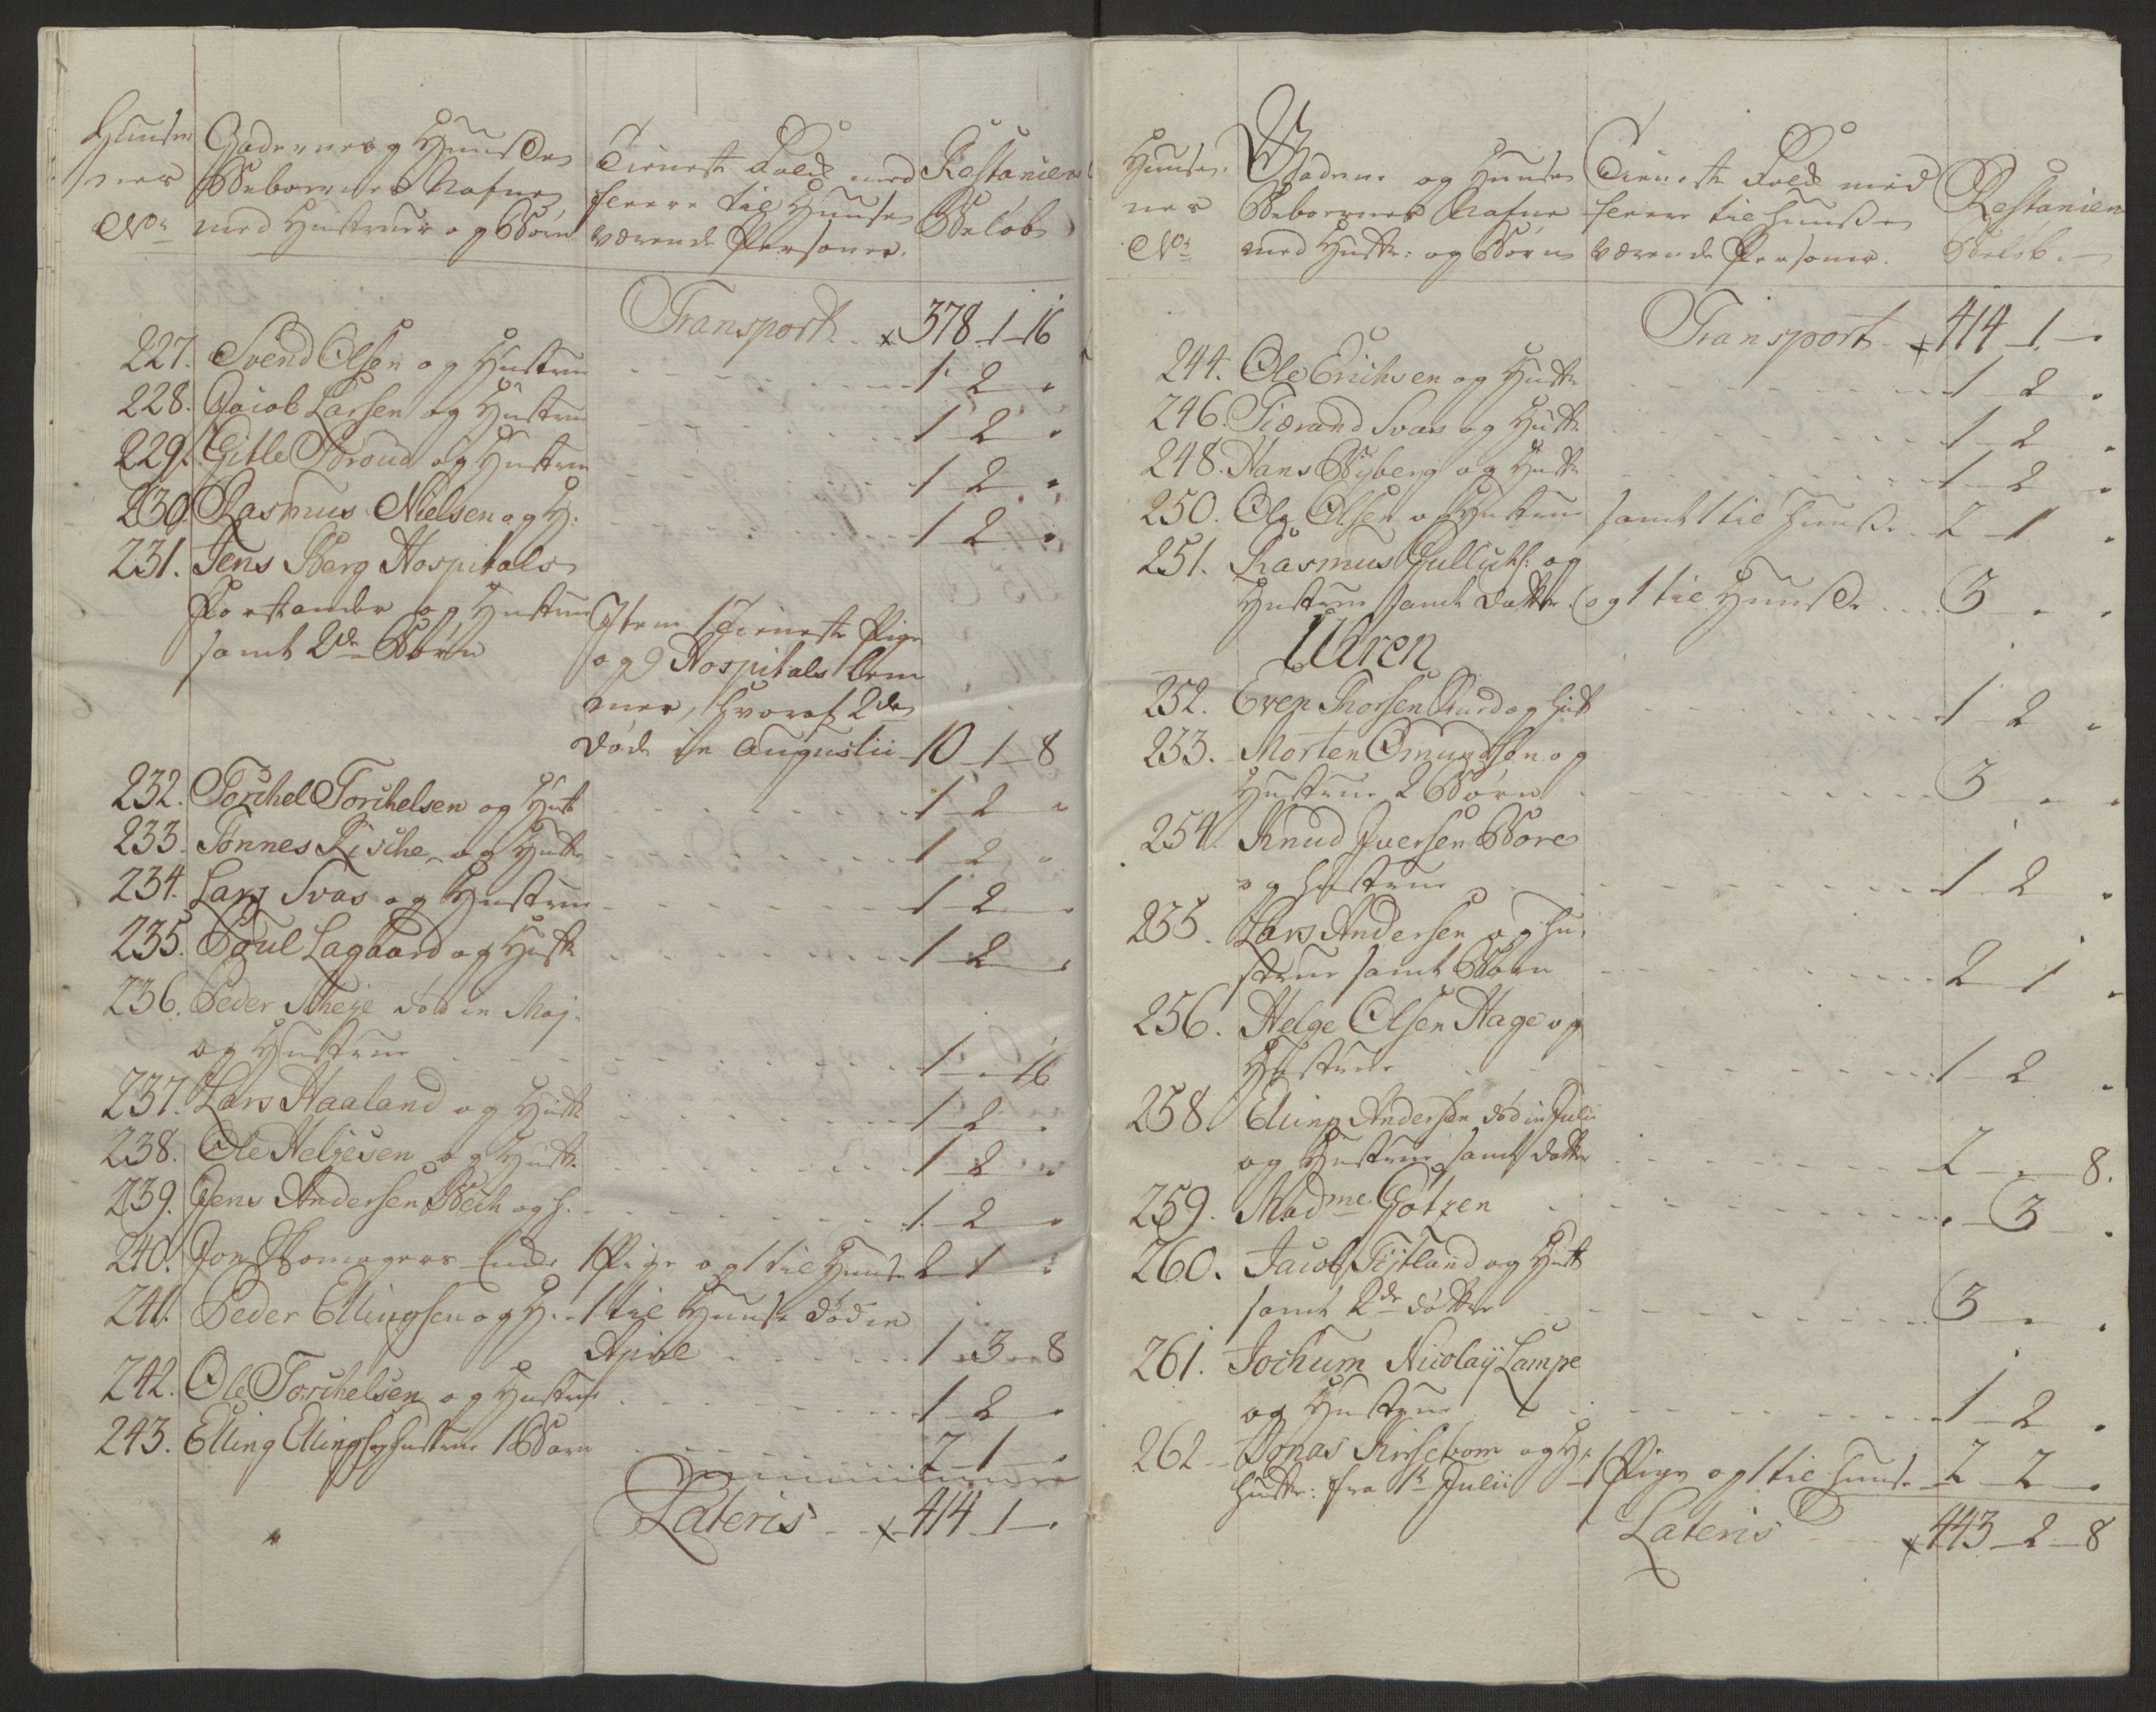 Huuse
nes
No
Gadernes og Huusenes
Beboernes Nafne
med Hustruer og Børn
Tieneste Folk med
fleere til Huuse
værende Persohner.
Restancien
Beløb
Transport 378 1 16
227. Svend Olsen og Hustrue 1 2 "
228. Jacob Larsen og Hustrue 1 2 "
229. Gitle og Hustrue 1 2 "
230 Rasmus Nielsen og H: 1 2 "
231. Jens Berg Hospitals
Forstander og Hustrue
samt 2de Børn
Item 1 Tieneste Pige
og 9 Hospitals Lem
mer, hvoraf 2de
døde in Augustii 10 1 8
232. Torchel Torchelsen og Hust 1 2 "
233. Tønnes Rische og Hustr 1 2 "
234. Lars Svas og Hustrue 1 2 "
235. Poul Lagaard og Hustr 1 2 "
236. Peder Scheye død in Maj.
og Hustrue 1 " 16
237. Lars Haaland og Hustr 1 2 "
238. Ole Helgesen og Hustr. 1 2 "
239. Jens Andersen Bech og H. 1 2 "
240. Jon Enke 1 Pige og 1 til Huuse 2 1 "
241. Peder Ellingsen og H. 1 til Huuse død in
April 1 3 8
242. Ole Torchelsen og Hustrue 1 2 "
243. Elling Ellings: og Hustrue 1 Barn 2 1 "
Lateris 414 1 "
Huuse
nes
No
Gaderne og Huuse
Beboernes Nafne
med Hustr: og Børn
Tieneste Folk med
fleere til Huuse
værende Persohner.
Restancien
Beløb.
Transport 414 1 "
244. Ole Erichsen og Hustr 1 2 "
246. Tiærand Svas og Hustr 1 2 "
248. Hans Wiberg og Hustr 1 2 "
250. Ole Olsen og Hustrue samt 1 til Huuse 2 1 "
251. Rasmus Gullichs: og
Hustrue samt Datter og 1 til Huuse 3 " "
Uhren
252. Even Thorsen og Hust 1 2 "
253. Morten Omundsøn og
Hustrue 2 Børn 3 " "
254. Knud Iversen Bore
og Hustrue 1 2 "
255. Lars Andersen og Hu
strue samt Barn 2 1 "
256. Helge Olsen Hage og
Hustrue 1 2 "
258. Elling Andersen død in Julii
og Hustrue samt Datter 2 " 8.
259. Madme Gøtzen " 3 "
260. Jacob Tijtland og Hust
samt 2de døttre 3 " "
261. Jochum Nicolaij Lampe
og Hustrue 1 2 "
262 Jonas Kirsebom og H:
Hustr: fra 1te Julii 1 Pige og 1 til Huuse 2 2 "
Lateris 443 2 8